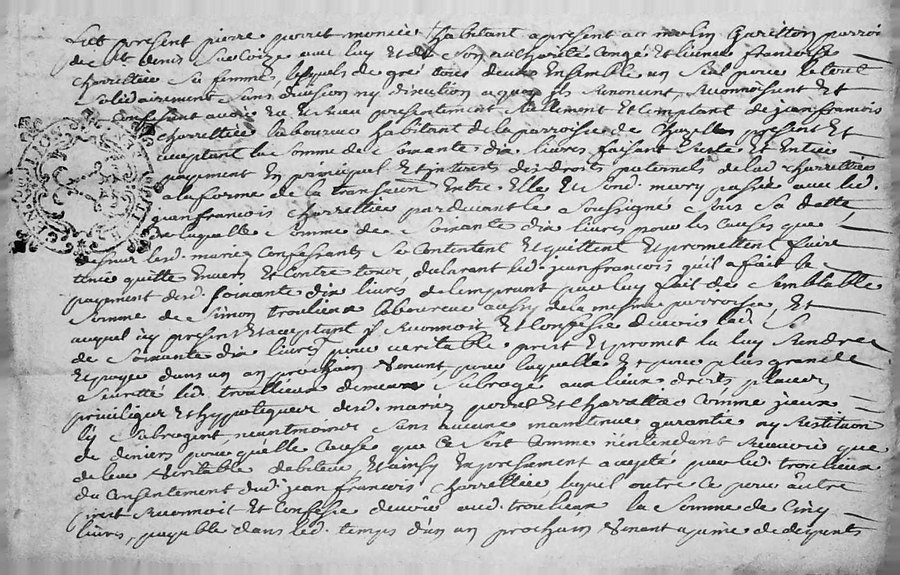 fut present pierre perret monier habitant a present au molin Garillon parroisse
de St denis Sucloize avec luy et de Son authorité Congé et licence francoise
Charrellier Sa femme, lesquels de gré tous deux Ensemble un Seul pour le tout
Solidairement Sans division ny dicution a quoy ils Renoncent, Reconnoisent Et
Confessent avoir Eu et Receu presentement Reellement Et Comptant de jean francois
Charrellier laboureur habitant de la parroisse de present Et
acceptant la Somme de Soixante dix livres faisant Reste Et Entier
payement En principal Et interets des droits paternels de lad. Charrellier
a la forme de la transaction Entre Elle Et Sond. mary passée avec led.
jean francois Charrellier pardevant le Soussigné Sous Sa datte
de laquelle Somme de Soixante dix livres pour les Causes que
dessus lesd. mariez Confessants Se Contentent Et quittent Et promettent faire
tenir quitte Envers Et Contre tous, declarant led. jean francois qu'il a fait le
payement desd. Soixante dix livres de l'emprunt par luy fait de Semblable
Somme de Simon trouilleux laboureur aussy de la mesme parroisse, Et
auquel icy present Et acceptant il Reconnoit Et Confesse devoir lad. So
de Soixante dix livres pour veritable prest Et promet la luy Rendre
Et payer dans un an prochain venant pour laquelle Et pour plus grande
Suretté led. trouilleux demeure Subrogé aux lieux droits places
privileges Et hypotèques desd. mariez perret Et Charrellier Comme iceux
ly Subrogent neantmoins Sans aucune maintenue garantie ny Restitution
de deniers pour quelle Cause que Ce Soit Comme n'entendant Recevoir que
de leur veritable debiteur, Et ainsy Expressement accepté par led. trouilleux
du Consentement dud. jean francois Charrellier lequel outre Ce pour autre
prest Reconnoit Et Confesse devoir aud. trouilleux la Somme de Cinq
livres, payable dans led. temps d'un an prochain venant a peine de depents